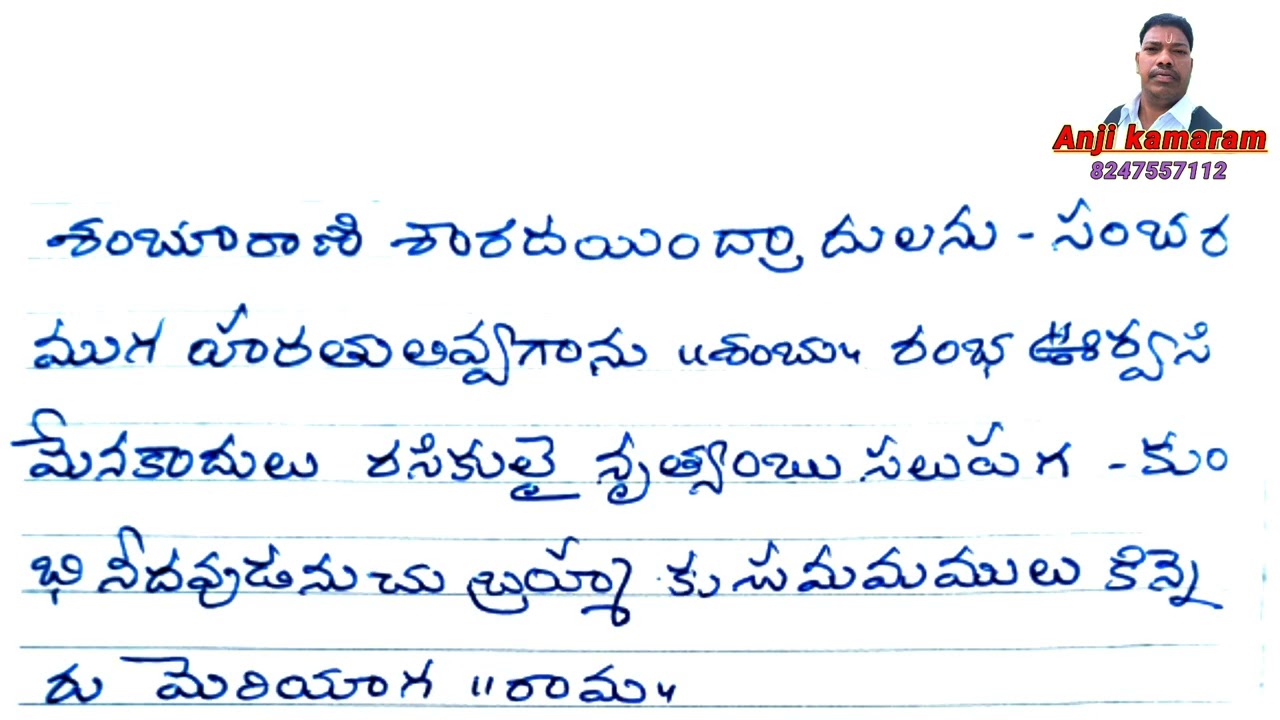 Anji kamaram
8247557112
శంబూరాణి శారదయిందర్రాదులను - సంబర
ముగ హారతుఅవ్వగాను "శంబు" రంభ ఊర్వసి
మేనకాదులు రసికులై నృత్యంబు సలుపగ - కుం
భి నీదవుడనుచు బ్రహ్మా కుసుమమములు కిన్నె
రు మెరియాగ "రామ"